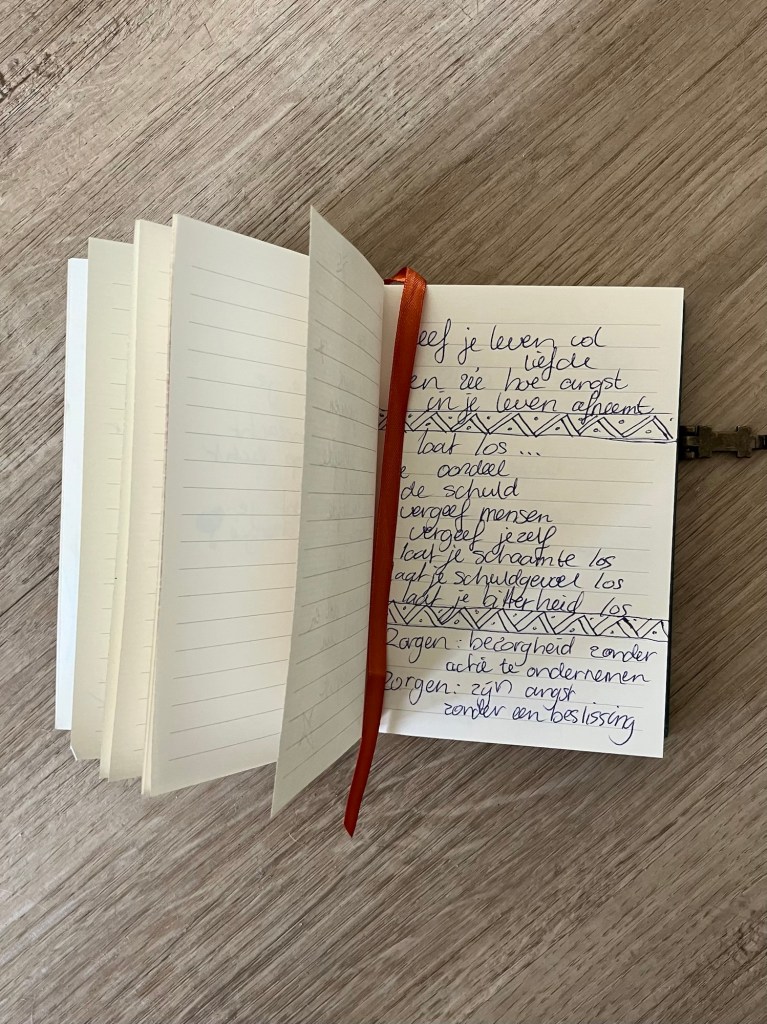 eef je leven vol
liefde
en zie hoe angst
in je leven afneemt
laat los ...
e oordeel
de schuld
vergeef mensen
vergeef jezelf
laat je schaamte los
aat je schuldgevoel los
laat je bitterheid los
Zorgen: bezorgheid zonder
actie te ondernemen
Zorgen: zijn angst
zonder een beslissing